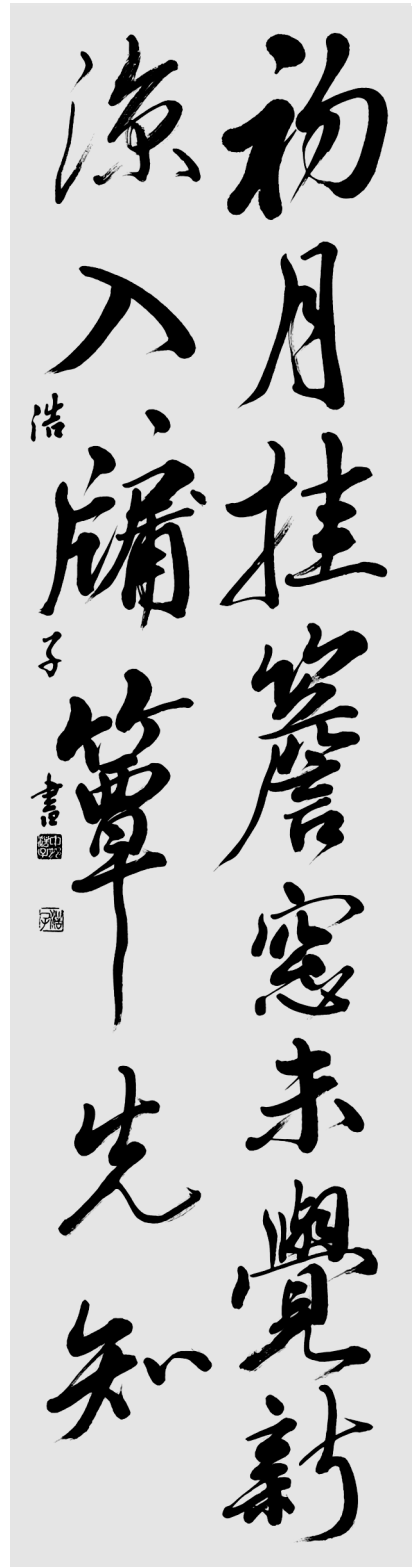 初月挂簷窓未覺新
涼入牖簟先知
浩子書
浩子